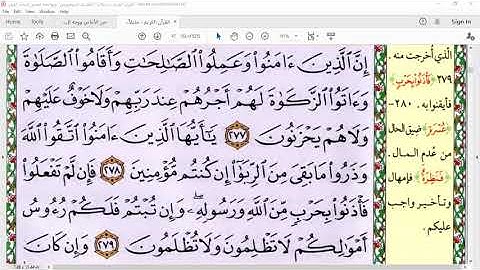 Sign In
إِنَّ الَّذِينَ ءَامَنُوا وَعَمِلُوا الصَّٰلِحَٰتِ وَأَقَامُوا الصَّلَوٰةَ
وَءَاتَوُا الزَّكَوٰةَ لَهُمْ أَجْرُهُمْ عِندَ رَبِّهِمْ وَلَا خَوْفٌ عَلَيْهِمْ
وَلَا هُمْ يَحْزَنُونَ ٢٧٧ يَٰٓأَيُّهَا الَّذِينَ ءَامَنُوا اتَّقُوا اللَّهَ
وَذَرُوا مَا بَقِيَ مِنَ الرِّبَوٰٓا إِن كُنتُم مُّؤْمِنِينَ ٢٧٨ فَإِن لَّمْ تَفْعَلُوا
فَأْذَنُوا بِحَرْبٍ مِّنَ اللَّهِ وَرَسُولِهِۦ ۖ وَإِن تُبْتُمْ فَلَكُمْ رُءُوسُ
أَمْوَٰلِكُمْ لَا تَظْلِمُونَ وَلَا تُظْلَمُونَ ٢٧٩ وَإِن كَانَ
الذي أخرجت منه .
٢٧٩ ﴿فَأْذَنُوا بِحَرْبٍ﴾
فأيقنوا به . ٢٨٠ -
﴿عُسْرَةٍ﴾ ضيق الحال
من عُدم المال .
﴿فَنَظِرَةٌ﴾ فإمهال
وتأخير واجب
عليكم .